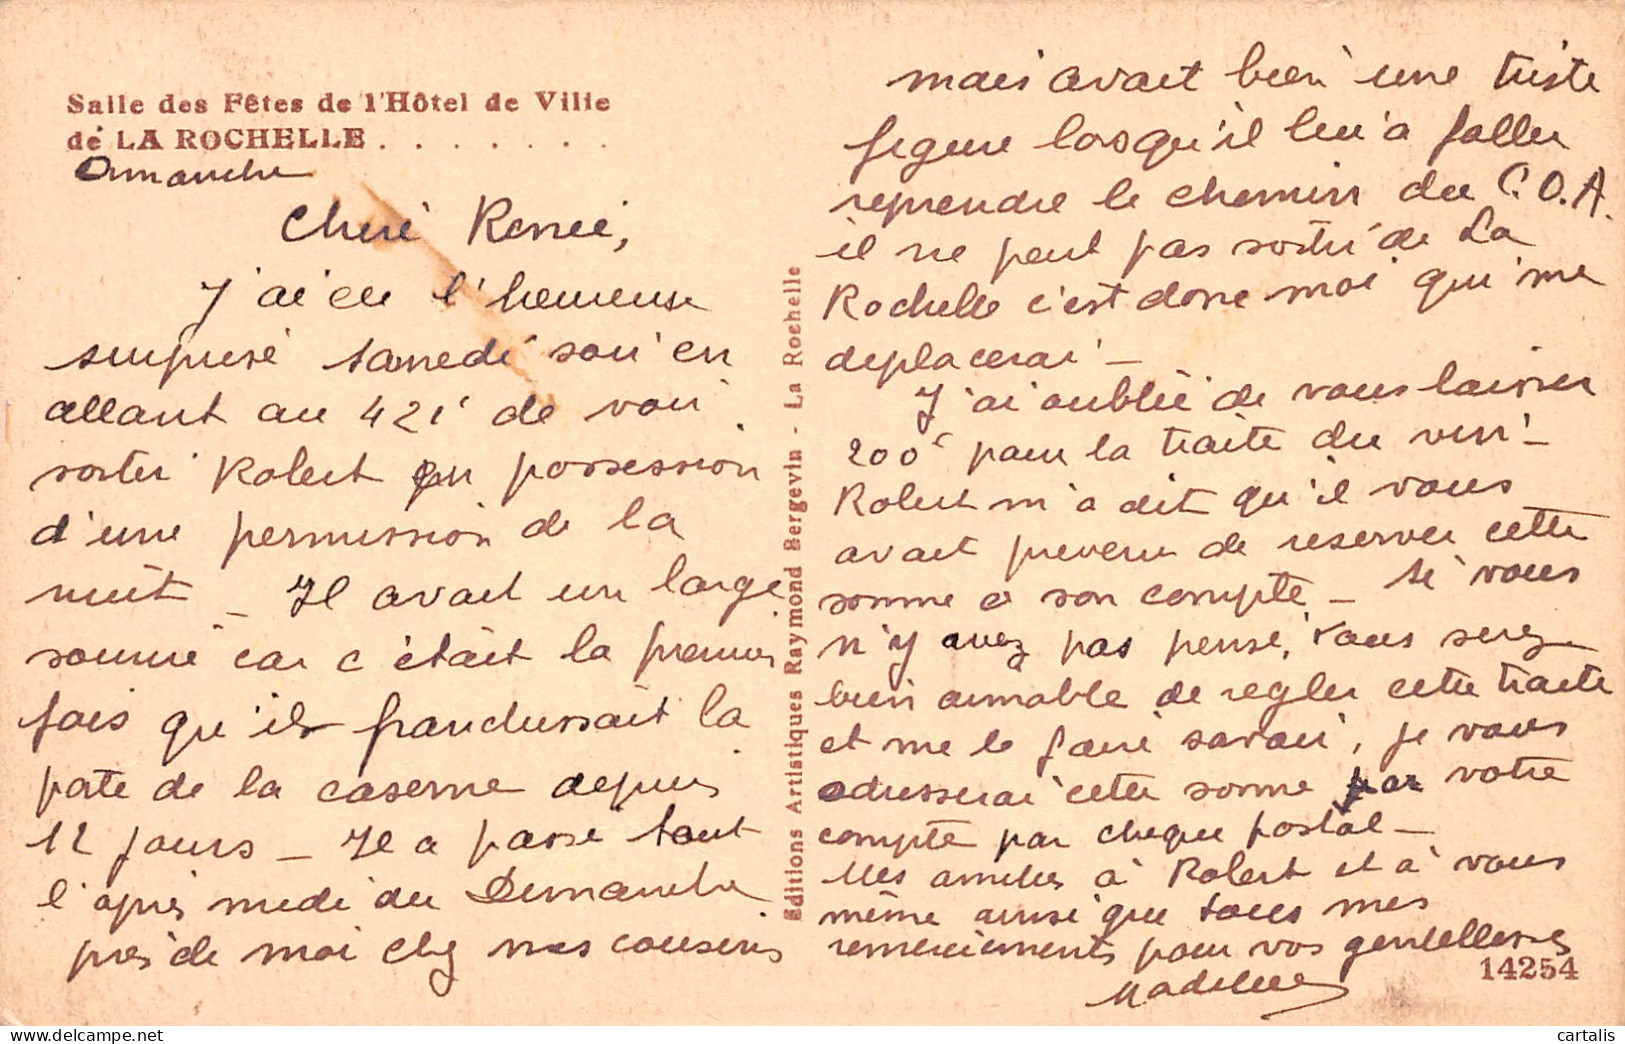 Salle des Fêtes de l'Hôtel de Ville
de LA ROCHELLE . . . . . . .
Dimanche
Chère Renée,
J'ai eu l'heureuse
surprise samedi soir en
allant au 421 de voir
sortir Robert en possession
d'une permission de la
nuit _ Il avait un large
sourire car c'était la première
fois qu'il franchissait la
porte de la caserne depuis
12 jours _ Il a passé tout
l'après midi du Dimanche
près de moi chez nos cousins
mais avait bien une triste
figure lorsqu'il lui a fallu
reprendre le chemin du C.O.A.
il ne peut pas sortir de La
Rochelle c'est donc moi qui me
deplacerai _
J'ai oublié de vous laisser
200 pour la traite du vin _
Robert m'a dit qu'il vous
avait prevenu de reserver cette
somme a son compte _ si vous
n'y avez pas pensé, vous serez
bien aimable de regler cette traite
et me le faire savoir, je vous
adresserai cette somme par votre
compte par cheque postal _
Mes amities à Robert et à vous
même ainsi que tous mes
remerciements pour vos gentillesses
Madeleine
14254
Editions Artistiques Raymond Bergevin - La Rochelle
cartalis